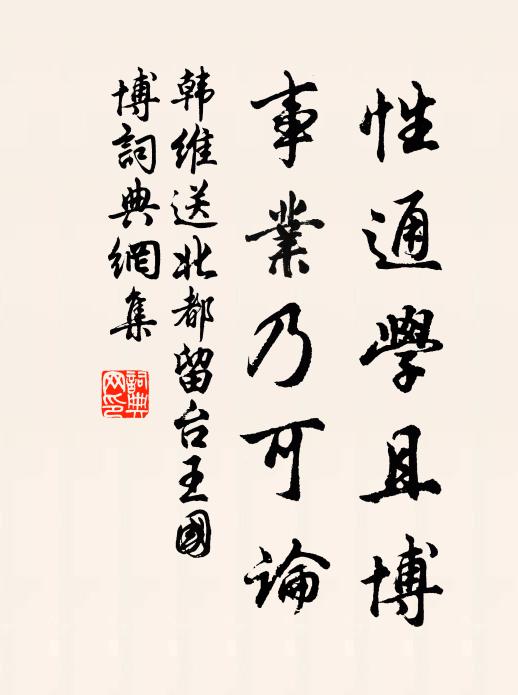 性通學且博
事業乃可論
韩維送北都留台王國
博詞典網集
詞典网印